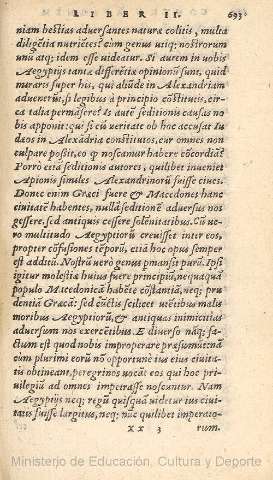 LIBER II. 693
niam bestias aduersantes naturæ colitis, multa
diligētia nutriētes? cùm genus utiq; nostrorum
unū atq; idem esse uideatur. Si autem in uobis
Aegyptijs tantæ differētiæ opinionū sunt, quid
miraris super his, qui aliūde in Alexandriam
aduenerūt, si legibus à principio cōstitutis, circa
ca talia permāsere? Is autē seditionis causas no
bis apponit: qui si cū ueritate ob hoc accusat Iu
dæos in Alexādria constitutos, cur omnes non
culpare possit, eo ꝙ noscamur habere cōcordiā?
Porrò etiā seditionis autores, quilibet inueniet
Apionis similes Alexandrinorū fuisse ciues.
Donec enim Græci fuere & Macedones hanc
ciuitatē habentes, nullā seditionē aduersus nos
gessere, sed antiquis cessere solēnitatibus. Cū ue-
ro multitudo Aegyptiorū creuisset inter eos,
propter cōfusiones tēporū, etiā hoc opus semper
est additū. Nostrū uerò genus pmansit purū. Ipsi
igitur molestiæ huius fuere principiū, nequaquā
populo Macedonicā habēte cōstantiā, neq; pru
dentiā Græcā: sed cūctis scilicet utētibus malis
moribus Aegyptiorū, & antiquas inimicitias
aduersum nos exercētibus. E diuerso nāq; fa-
ctum est quod nobis improperare præsumūt: nā
cùm plurimi eorū nō opportunè ius eius ciuita-
tis obtineant, peregrinos uocāt eos qui hoc pri-
uilegiū ad omnes impetrasse noscuntur. Nam
Aegyptijs neq; regū quisquā uidetur ius ciui-
tatis fuisse largitus, neq; nūc quilibet imperato-
xx 3 rum.
Ministerio de Educación, Cultura y Deporte